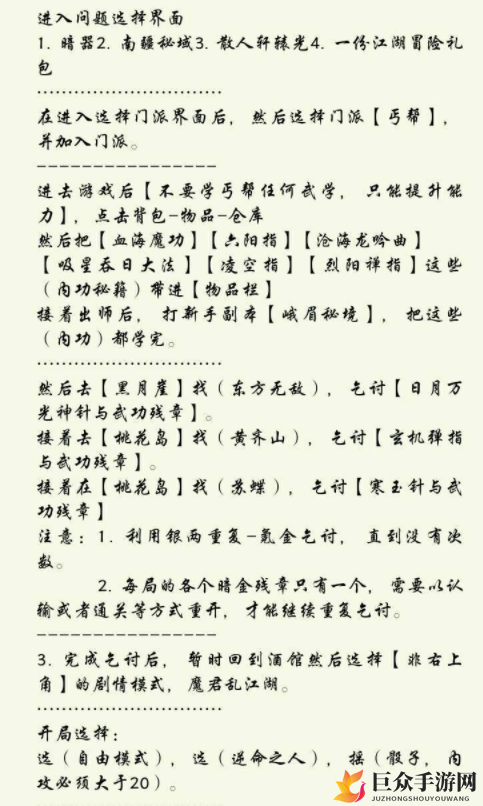 进入问题选择界面
1. 暗器2. 南疆秘域3. 散人轩辕光4. 一份江湖冒险礼
包
······························
在进入选择门派界面后, 然后选择门派【丐帮】,
并加入门派。
------------------
进去游戏后【不要学丐帮任何武学, 只能提升能
力】, 点击背包-物品-仓库
然后把【血海魔功】【六阳指】【沧海龙吟曲】
【吸星吞日大法】【凌空指】【烈阳禅指】这些
(内功秘籍) 带进【物品栏】
接着出师后, 打新手副本【峨眉秘境】, 把这些
(内功) 都学完。
······························
然后去【黑月崖】找(东方无敌), 乞讨【日月万
光神针与武功残章】。
接着去【桃花岛】找(黄齐山), 乞讨【玄机弹指
与武功残章】。
接着在【桃花岛】找(苏蝶), 乞讨【寒玉针与武
功残章】
注意: 1. 利用银两重复-氪金乞讨, 直到没有次
数。
2. 每局的各个暗金残章只有一个, 需要以认
输或者通关等方式重开, 才能继续重复乞讨。
------------------
3. 完成乞讨后, 暂时回到酒馆然后选择【非右上
角】的剧情模式, 魔君乱江湖。
······························
开局选择:
选(自由模式), 选(逆命之人), 摇(骰子, 内
攻必须大于20)。
------------------
巨众手游网
JUZHONGSHOUYOUWANG